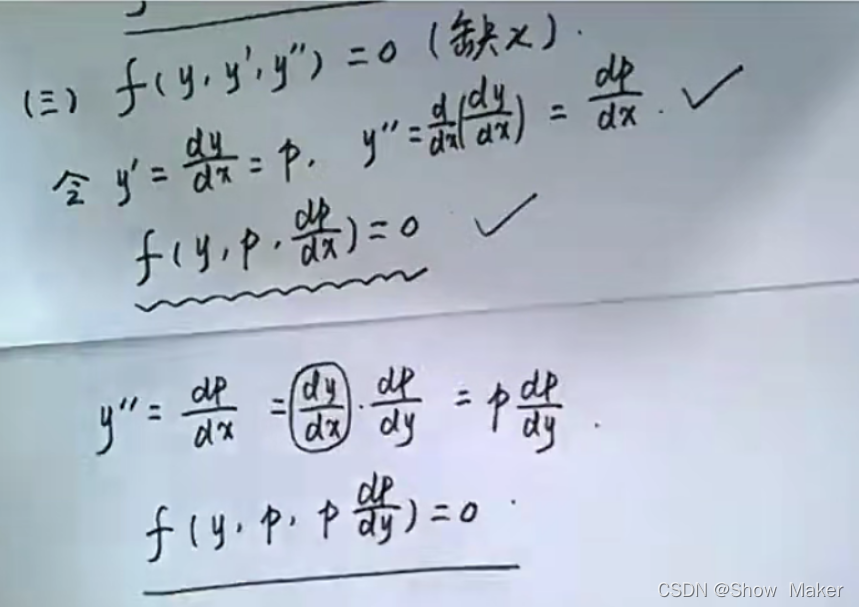 (三) f(y, y', y'') = 0 (缺x).
令 y' = dy/dx = p, y'' = d/dx(dy/dx) = dp/dx. ✓
f(y, p, dp/dx) = 0 ✓
y'' = dp/dx = dy/dx · dp/dy = p dp/dy.
f(y, p, p dp/dy) = 0.
CSDN @Show Maker